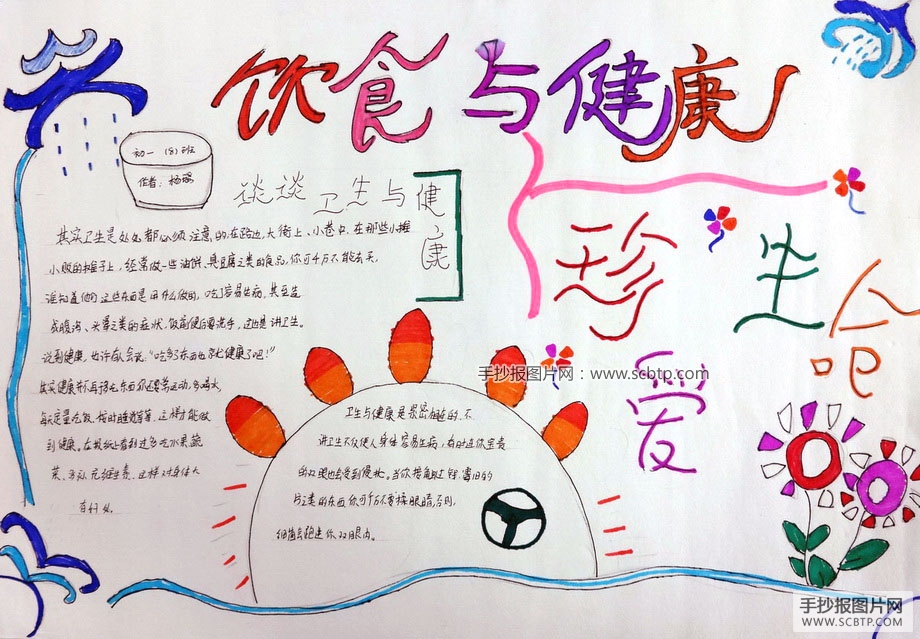 饮食与健康
初一 (8) 班
作者：杨瑶
谈谈卫生与健康
其实卫生是处处都必须注意的,在路边,大街上、小巷中,在那些小摊
小贩的摊子上，经常做一些油饼、臭豆腐之类的食品，你可千万不能去买，
谁知道他们这些东西是用什么做的，吃了容易生病，甚至造
成腹泻、头晕之类的症状，饭前便后要洗手，这也是讲卫生。
说到健康，也许有人会说："吃多了东西也就健康了吧！"
其实健康并不再于吃东西，你还要常运动，多喝水，
每天定量吃饭、按时睡觉等等，这样才能做
到健康。在报纸上看到过多吃水果蔬
菜、多补充维生素，这样对身体大
有利处。
卫生与健康是紧密相连的，不
讲卫生不仅使人身体容易生病，有时连你宝贵
的双眼也会受到侵犯。当你揩
之类的东西，你可千万不要揉眼睛，否则，
细菌会跑进你双眼内。
珍爱生命吧
手抄报图片网：www.scbtp.com
手抄报图片网
WWW.SCBTP.COM